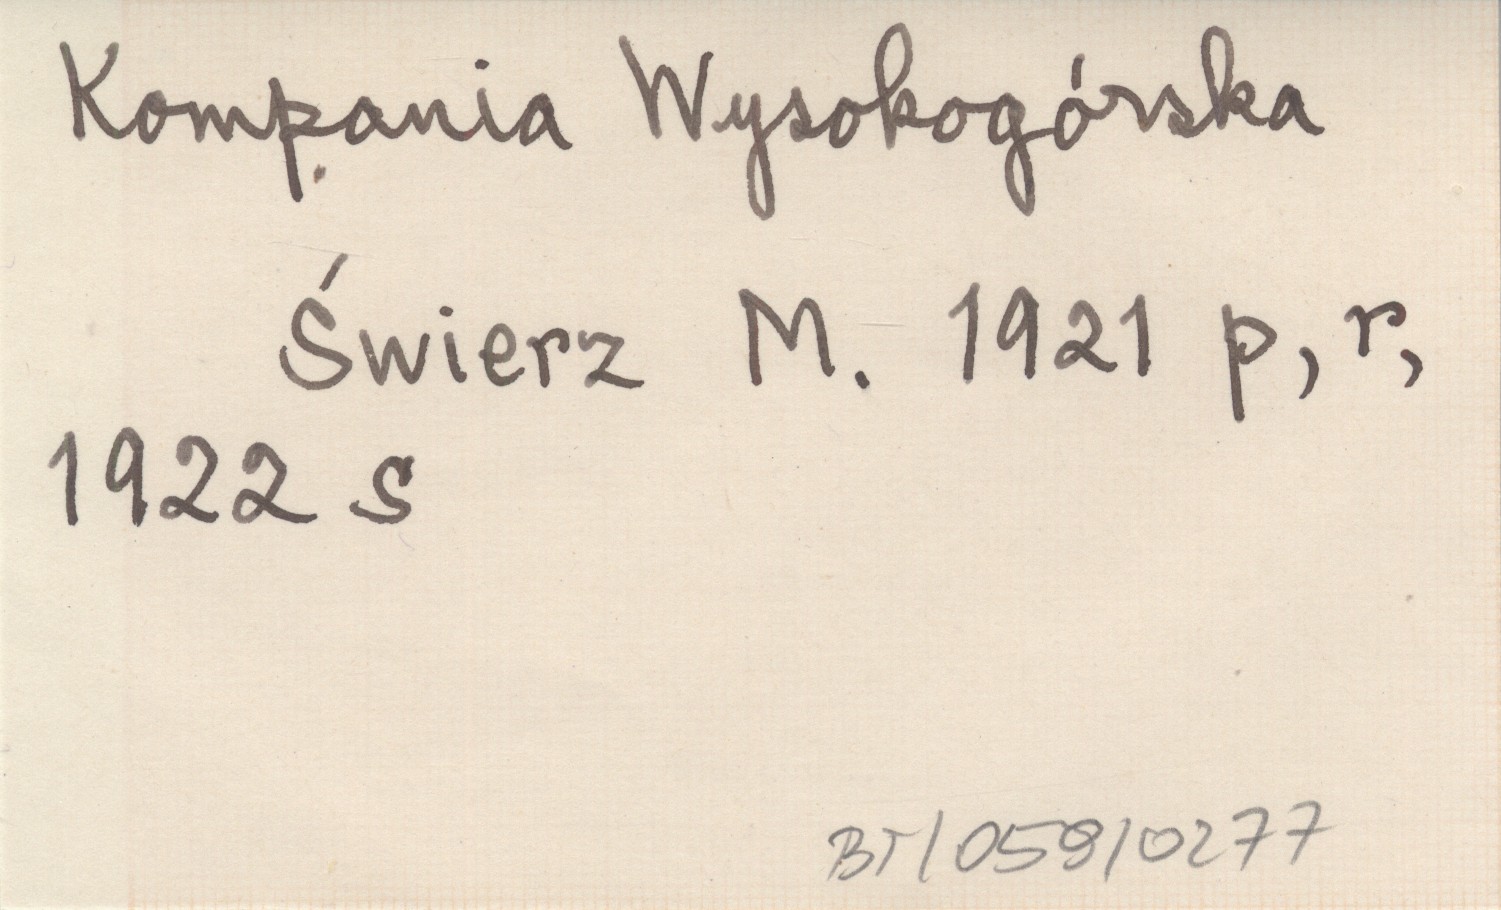 Kompania Wysokogórska
Świerz M. 1921 p, r,
1922 s
BT/059/0277